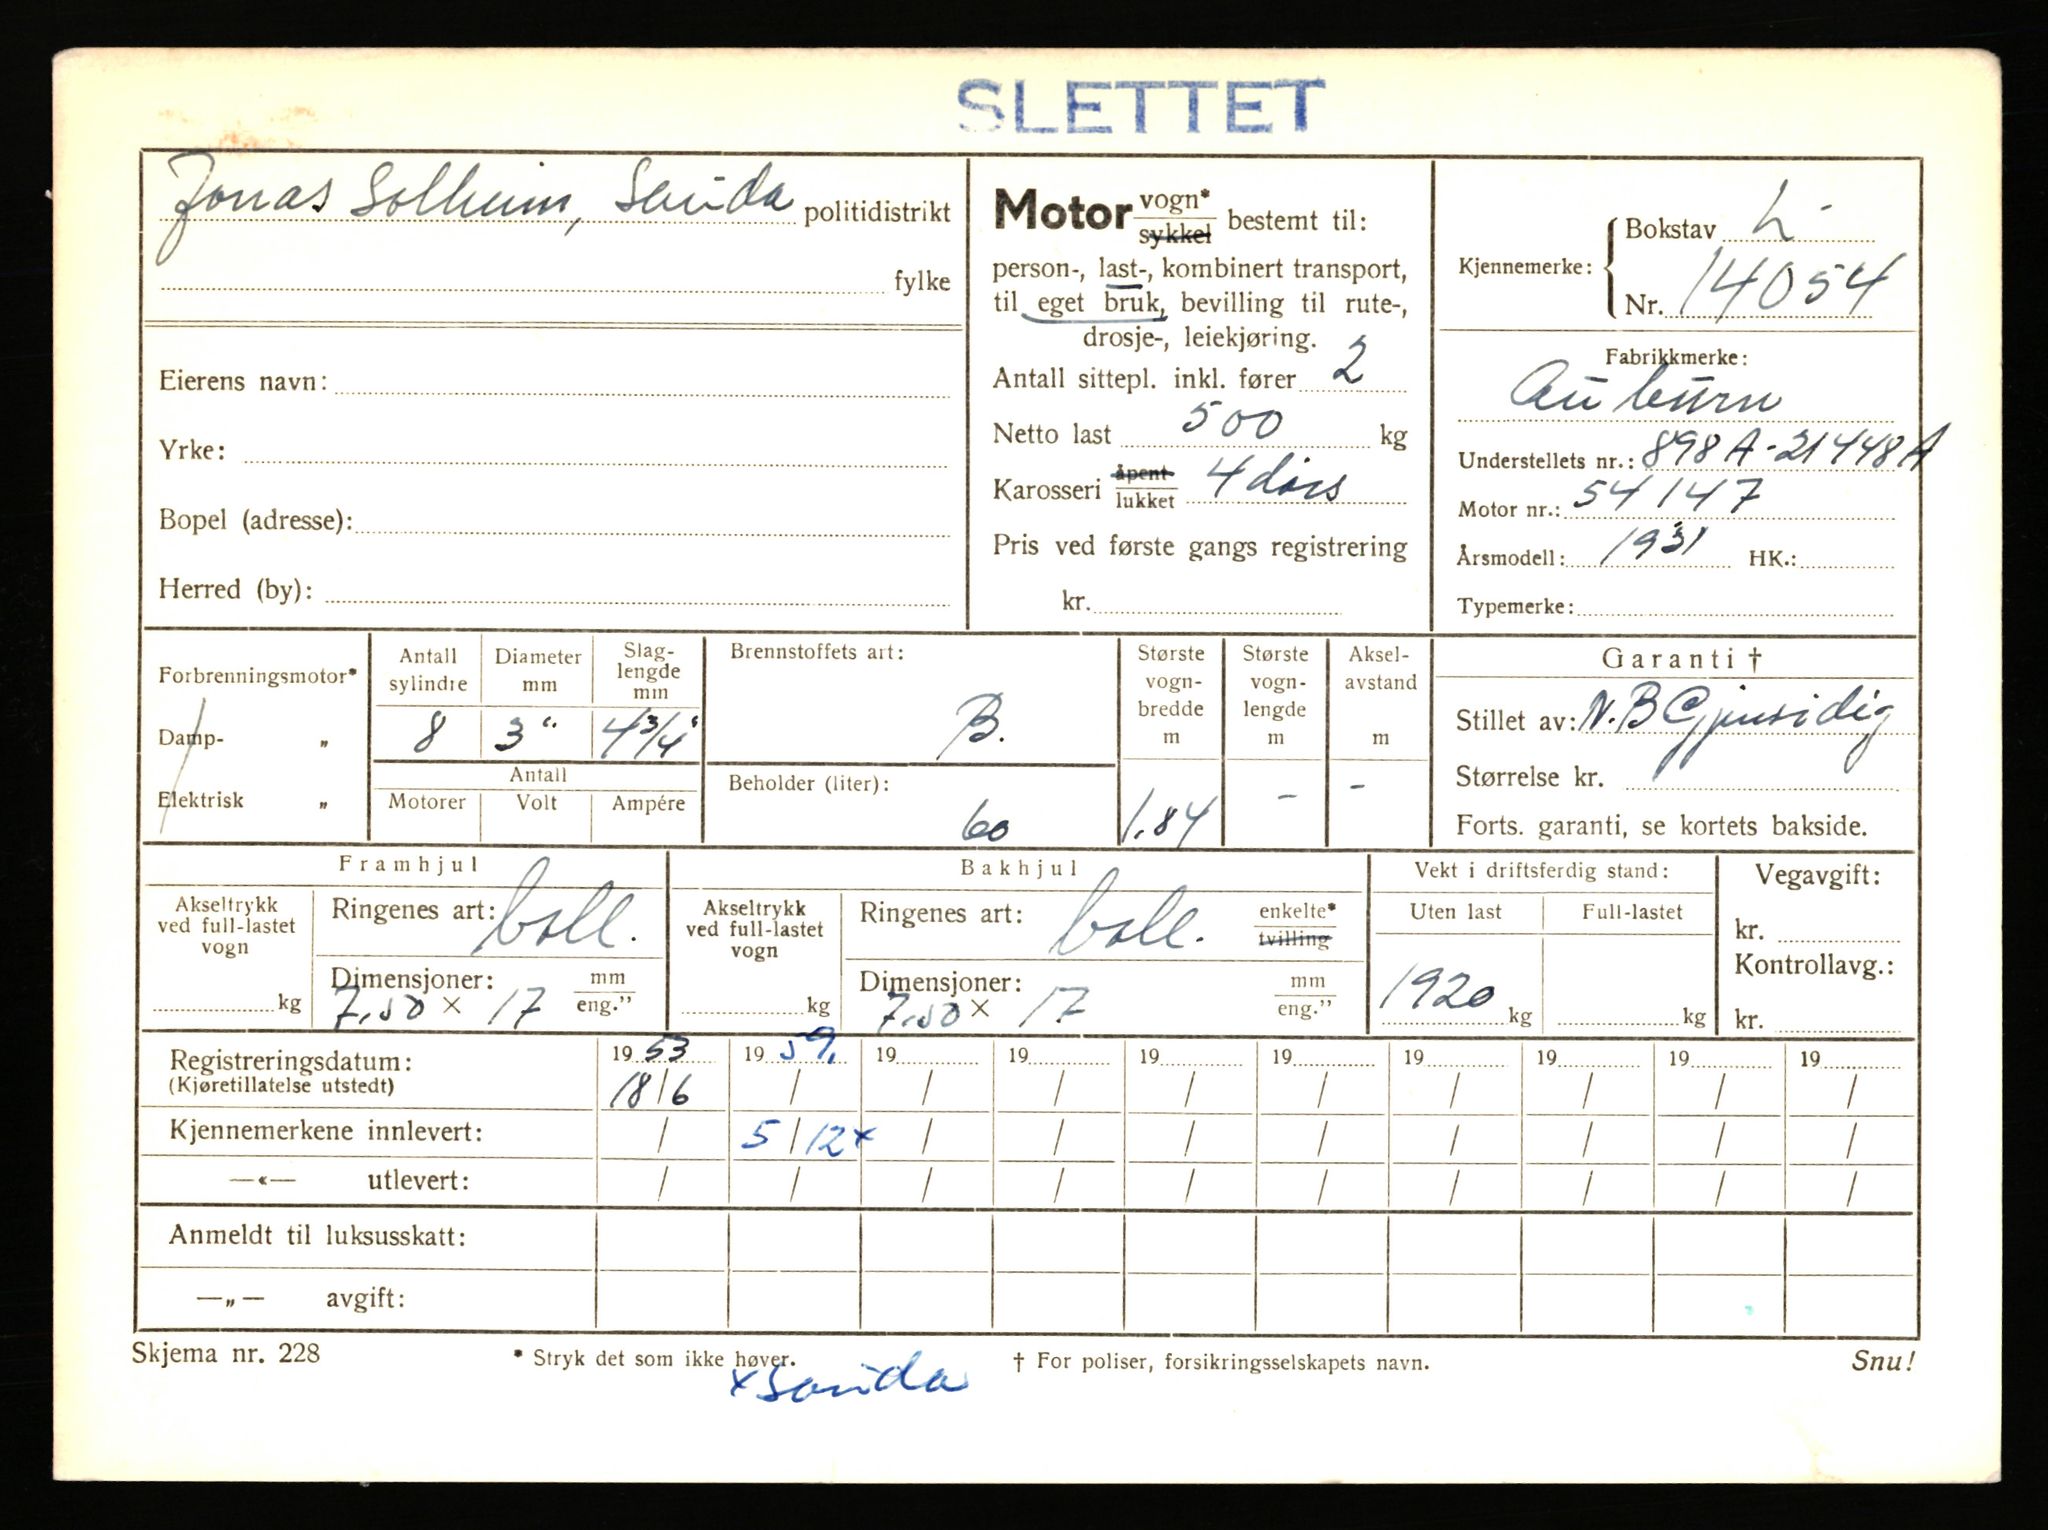 SLETTET
Jonas Solheim, Sauda politidistrikt
fylke
Eierens navn:
Yrke:
Bopel (adresse):
Herred (by):
Motor vogn* sykkel bestemt til:
person-, last-, kombinert transport,
til eget bruk, bevilling til rute-,
drosje-, leiekjøring.
Antall sittepl. inkl. fører 2
Netto last 500 kg
Karosseri åpent lukket 4 dørs
Pris ved første gangs registrering
kr.
Kjennemerke: Bokstav L-
Nr. 14054
Fabrikkmerke:
Auburn
Understellets nr.: 898 A - 21448 A
Motor nr.: 54147
Årsmodell: 1931 HK.:
Typemerke:
Forbrenningsmotor*
Damp- „
Elektrisk „
Antall sylindre
8
Diameter mm
3"
Slaglengde mm
4 3/4"
Antall
Motorer Volt Ampére
Brennstoffets art:
B.
Beholder (liter):
60
Største vogn-bredde m
1.84
Største vogn-lengde m
-
Aksel-avstand m
-
Garanti †
Stillet av: N.B Gjensidig
Størrelse kr.
Forts. garanti, se kortets bakside.
Framhjul
Akseltrykk
ved full-lastet
vogn
kg
Ringenes art: ball.
Dimensjoner: mm
7.50 × 17 eng."
Bakhjul
Akseltrykk
ved full-lastet
vogn
kg
Ringenes art: ball. enkelte* tvilling
Dimensjoner: mm
7.50 × 17 eng."
Vekt i driftsferdig stand:
Uten last Full-lastet
1920 kg kg
Vegavgift:
kr.
Kontrollavg.:
kr.
Registreringsdatum: 19 53 19 59. 19 19 19 19 19 19 19 19
(Kjøretillatelse utstedt) 18/6 / / / / / / / / /
Kjennemerkene innlevert: / 5/12 x / / / / / / / /
—«— utlevert: / / / / / / / / / /
Anmeldt til luksusskatt:
—„— avgift:
Skjema nr. 228 * Stryk det som ikke høver. † For poliser, forsikringsselskapets navn. Snu!
x Sauda